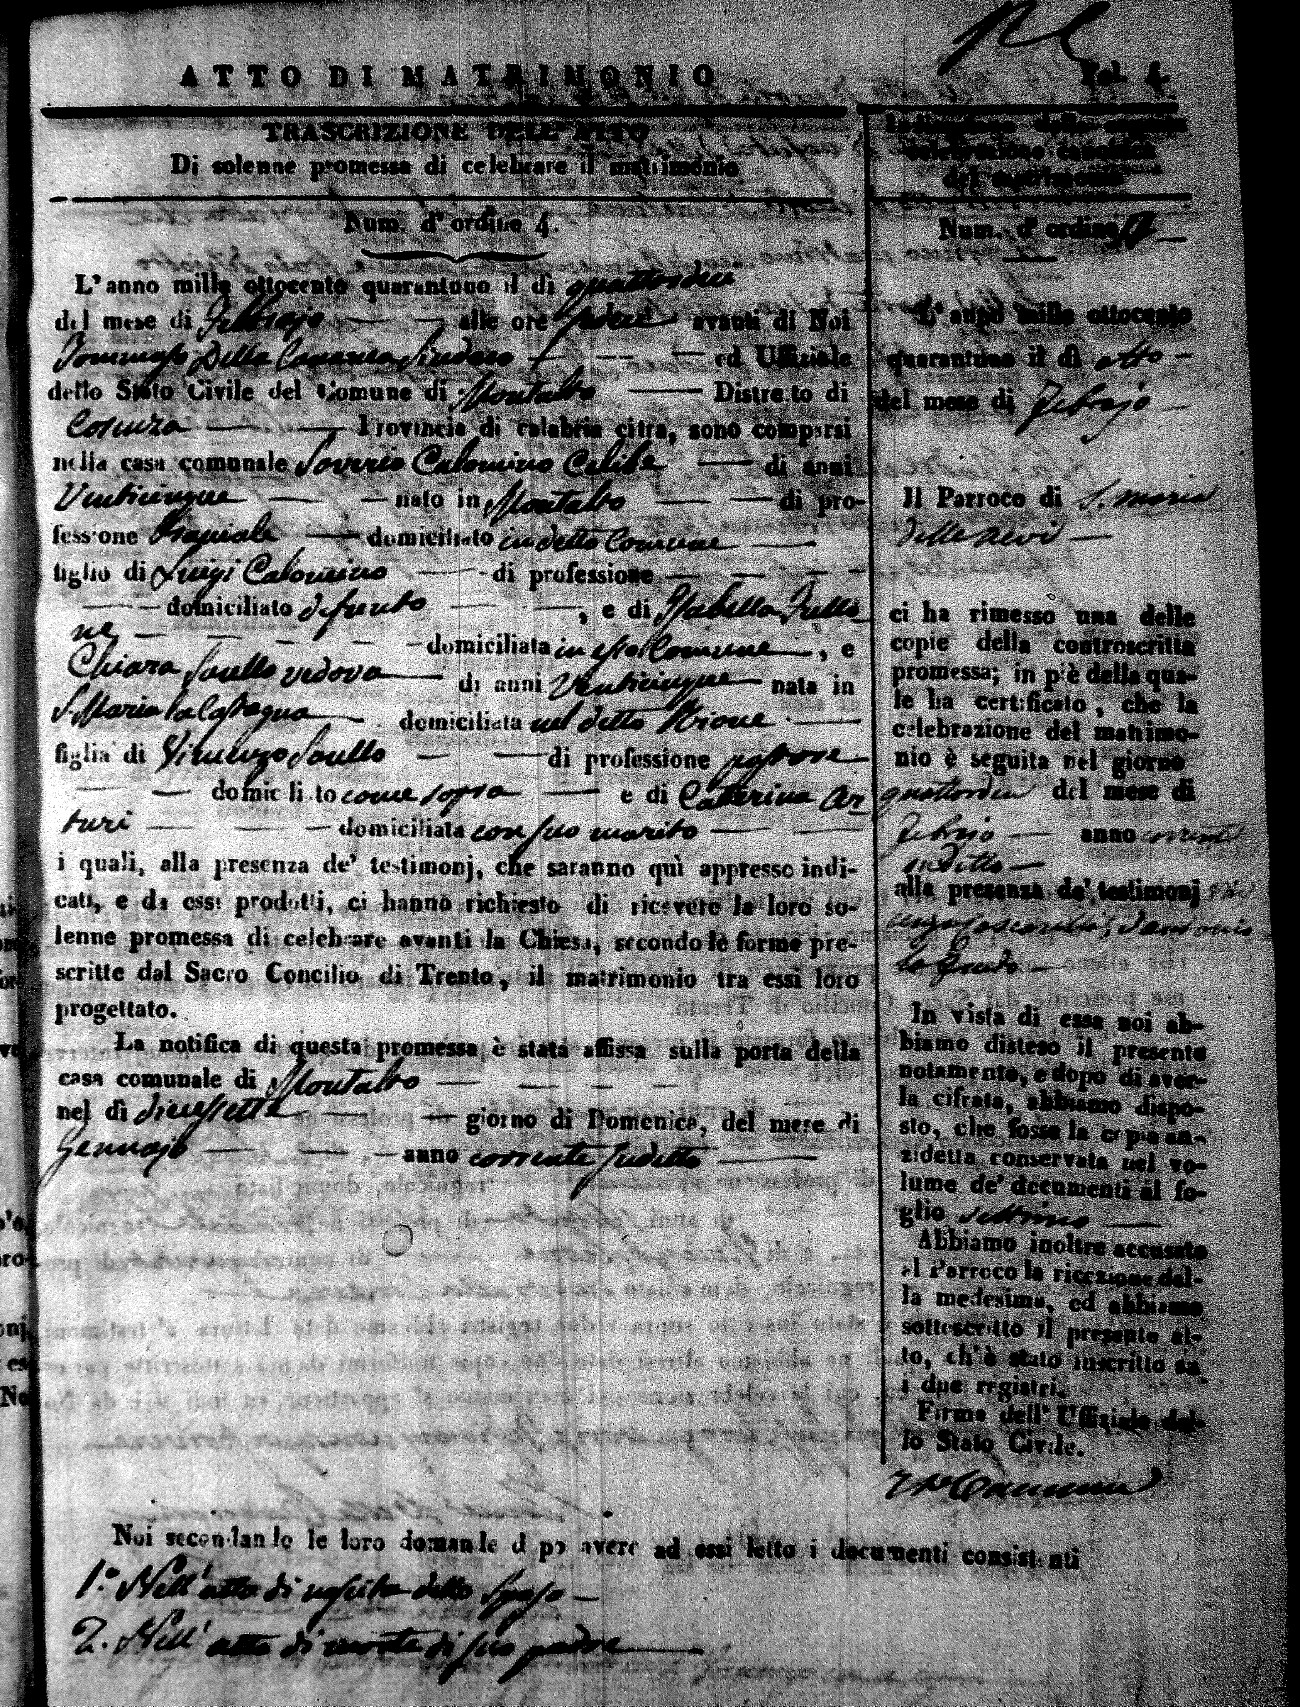 Fol. 4.
ATTO DI MATRIMONIO
TRASCRIZIONE DELL'ATTO
Di solenne promessa di celebrare il matrimonio
Num. d'ordine 4.
L'anno mille ottocento quarantuno il dì quattordici
del mese di Febbrajo alle ore avanti di Noi
Tommaso Della Cananea Sindaco ed Uffiziale
dello Stato Civile del Comune di Montalto Distretto di
Cosenza Provincia di calabria citra, sono comparsi
nella casa comunale Saverio Calomino Celibe di anni
Venticinque nato in Montalto di pro-
fessione domiciliato in detto Comune
figlio di Luigi Calomino di professione
domiciliato defunto , e di Isabella
domiciliata in esso Comune , e
Chiara Saullo vedova di anni Venticinque nata in
S. Maria la Castagna domiciliata nel detto Rione
figlia di Vincenzo Saullo di professione
domiciliato come sopra e di Caterina Ar
turi domiciliata con suo marito
i quali, alla presenza de' testimonj, che saranno quì appresso indi-
cati, e da essi prodotti, ci hanno richiesto di ricevere la loro so-
lenne promessa di celebrare avanti la Chiesa, secondo le forme pre-
scritte dal Sacro Concilio di Trento, il matrimonio tra essi loro
progettato.
La notifica di questa promessa è stata affissa sulla porta della
casa comunale di Montalto
nel dì diciassette giorno di Domenica, del mese di
Gennajo anno corrente sudetto
Noi secondando le loro domande dopo avere ad essi letto i documenti consistenti
1.° Nell'atto di nascita dello Sposo
2. Nell'atto di morte di suo padre
Indicazione della seguita
celebrazione canonica
del matrimonio
Num. d'ordine
L'anno mille ottocento
quarantuno il dì otto
del mese di Febrajo
Il Parroco di S. Maria
delle Nevi
ci ha rimesso una delle
copie della controscritta
promessa; in piè della qua-
le ha certificato, che la
celebrazione del matrimo-
nio è seguita nel giorno
quattordici del mese di
Febrajo anno corrente
sudetto
alla presenza de' testimonj
In vista di essa noi ab-
biamo disteso il presente
notamento, e dopo di aver-
la cifrata, abbiamo dispo-
sto, che fosse la copia an-
zidetta conservata nel vo-
lume de' documenti al fo-
glio settimo
Abbiamo inoltre accusato
al Parroco la ricezione del-
la medesima, ed abbiamo
sottoscritto il presente at-
to, ch'è stato inscritto su
i due registri.
Firma dell'Uffiziale del-
lo Stato Civile.